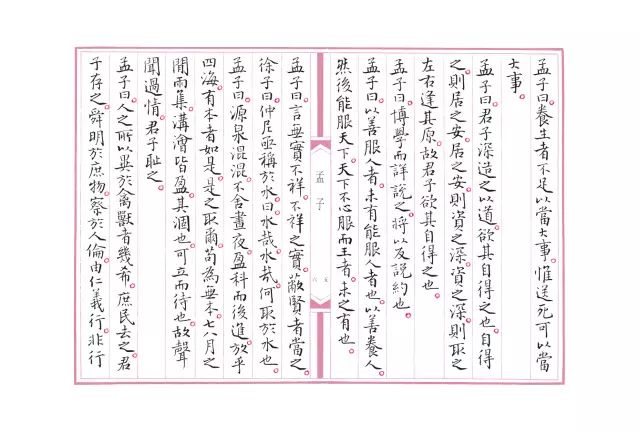 孟子曰。養生者不足以當大事。惟送死可以當
大事。
孟子曰。君子深造之以道。欲其自得之也。自得
之。則居之安。居之安。則資之深。資之深。則取之
左右逢其原。故君子欲其自得之也。
孟子曰。博學而詳說之。將以反說約也。
孟子曰。以善服人者。未有能服人者也。以善養人。
然後能服天下。天下不心服而王者。未之有也。
孟子
孟子曰。言無實不祥。不祥之實。蔽賢者當之。
徐子曰。仲尼亟稱於水曰。水哉水哉。何取於水也。
孟子曰。源泉混混。不舍晝夜。盈科而後進。放乎
四海。有本者如是。是之取爾。苟為無本。七八月之
閒雨集。溝澮皆盈。其涸也。可立而待也。故聲
聞過情。君子恥之。
孟子曰。人之所以異於禽獸者幾希。庶民去之。君
子存之。舜明於庶物。察於人倫。由仁義行。非行